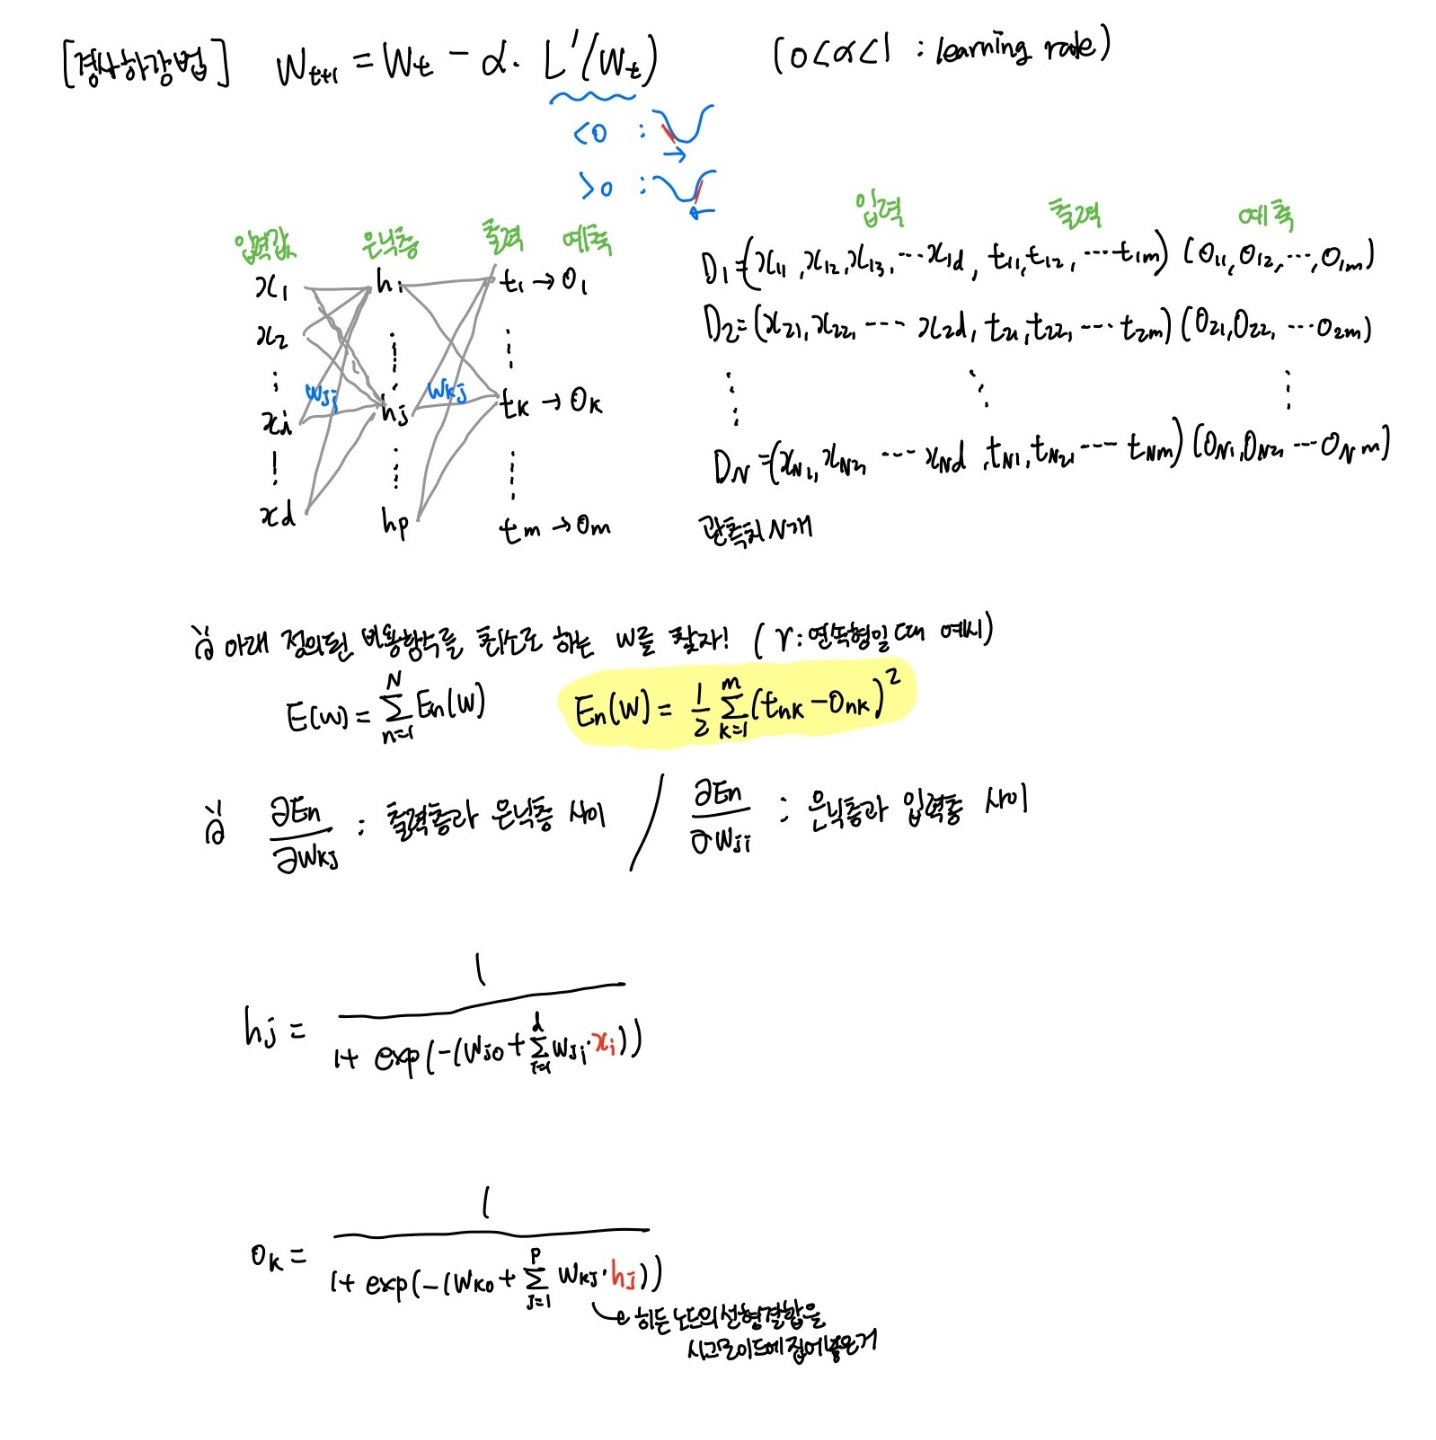 [경사하강법] W_{t+1} = W_t - α · L'(W_t) (0<α<1 : learning rate)
<0 :
>0 :
입력값 은닉층 출력 예측
x_1 h_1 t_1 → O_1
x_2
W_{ji} W_{kj}
x_i h_j t_k → O_k
x_d h_p t_m → O_m
입력 출력 예측
D_1=(x_{11}, x_{12}, x_{13}, ⋯ x_{1d}, t_{11}, t_{12}, ⋯ t_{1m}) (O_{11}, O_{12}, ⋯, O_{1m})
D_2=(x_{21}, x_{22}, ⋯ x_{2d}, t_{21}, t_{22}, ⋯ t_{2m}) (O_{21}, O_{22}, ⋯ O_{2m})
D_N=(x_{N1}, x_{N2}, ⋯ x_{Nd}, t_{N1}, t_{N2}, ⋯ t_{Nm}) (O_{N1}, O_{N2}, ⋯ O_{Nm})
관측치 N개
아래 정의된 비용함수를 최소로 하는 W를 찾자! (Y: 연속형일 때 예시)
E(W) = \sum_{n=1}^{N} E_n(W) E_n(W) = \frac{1}{2} \sum_{k=1}^{m} (t_{nk} - O_{nk})^2
\frac{∂E_n}{∂W_{kj}} : 출력층과 은닉층 사이 / \frac{∂E_n}{∂W_{ji}} : 은닉층과 입력층 사이
h_j = \frac{1}{1+ exp(-(W_{j0} + \sum_{i=1}^{d} W_{ji}·x_i))}
O_k = \frac{1}{1+ exp(-(W_{k0} + \sum_{j=1}^{p} W_{kj}·h_j))}
히든 노드의 선형결합을
시그모이드에 집어넣은거